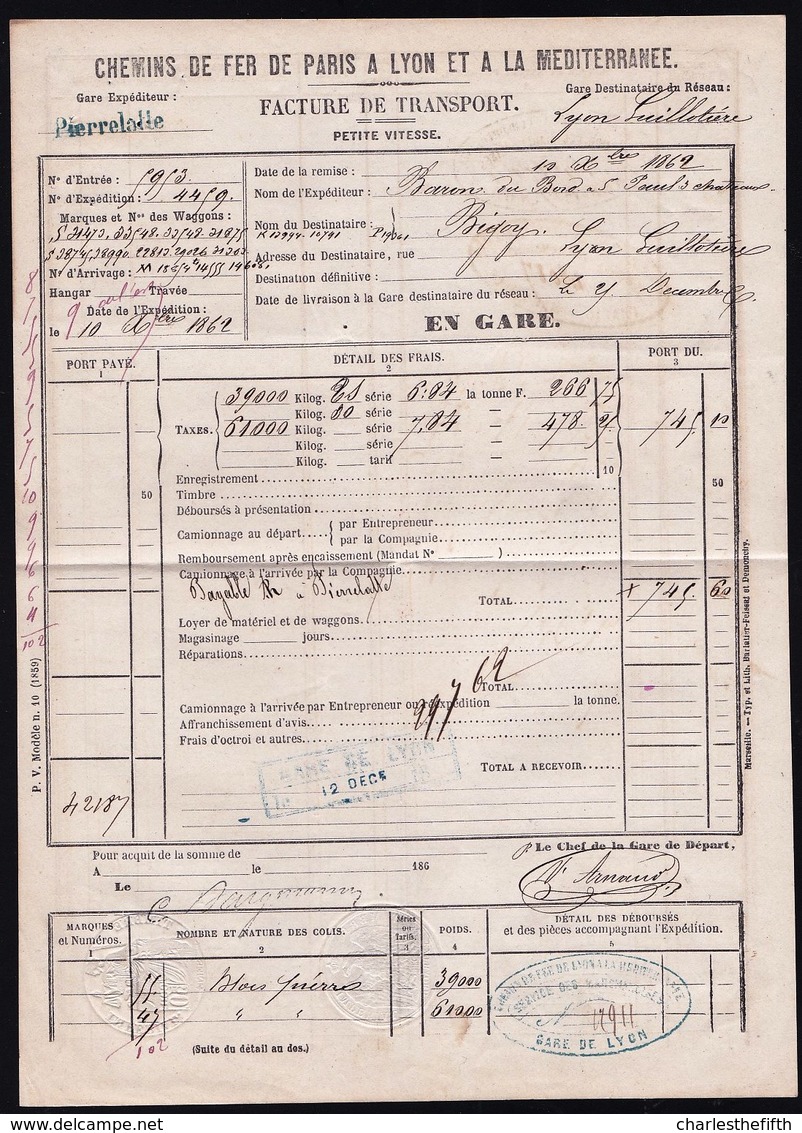 CHEMINS DE FER DE PARIS A LYON ET A LA MEDITERRANEE.
Gare Expéditeur :
Pierrelatte
FACTURE DE TRANSPORT.
PETITE VITESSE.
Gare Destinataire du Réseau :
Lyon Guillotière
N° d'Entrée : 5953
N° d'Expédition : 4459.
Marques et Nos des Wagons :
N° d'Arrivage :
Hangar Travée
Date de l'Expédition :
le 10 Xbre 1862
Date de la remise : 10 Xbre 1862
Nom de l'Expéditeur : Baron du Bord a St Paul 3 chateaux
Nom du Destinataire : Bigoy.
K 12944. 10741
Adresse du Destinataire, rue Lyon Guillotière
Destination définitive :
Date de livraison à la Gare destinataire du réseau : Le 25 Decembre
EN GARE.
PORT PAYÉ.
1
DÉTAIL DES FRAIS.
2
PORT DU.
3
TAXES.
39000 Kilog. série 6.84 la tonne F. 266 75
61000 Kilog. série 7,84 — 478. 25 745 10
Kilog. série —
Kilog. tarif —
Enregistrement 10
50 Timbre 50
Déboursés à présentation
Camionnage au départ
par Entrepreneur
par la Compagnie
Remboursement après encaissement (Mandat N° )
Camionnage à l'arrivée par la Compagnie
Payable à Pierrelatte
TOTAL 745. 60
Loyer de matériel et de wagons
Magasinage jours
Réparations
62
TOTAL
Camionnage à l'arrivée par Entrepreneur ou réexpédition la tonne.
Affranchissement d'avis
Frais d'octroi et autres
GARE DE LYON
12 DECE
TOTAL A RECEVOIR
42187
Pour acquit de la somme de
A le 186
Le
Le Chef de la Gare de Départ,
Arnaud
MARQUES
et Numéros.
1
NOMBRE ET NATURE DES COLIS.
2
Séries
ou
Tarifs.
3
POIDS.
4
DÉTAIL DES DÉBOURSÉS
et des pièces accompagnant l'Expédition.
5
55 Blocs pierre 39000
47 " " 61000
102
(Suite du détail au dos.)
GARE DE LYON
8
7
5
5
9
5
7
5
10
9
9
6
6
4
102
P. V. Modèle n. 10 (1859)
Marseille. — Typ. et Lith. Barlatier-Feissat et Demonchy.
charlesthefifth